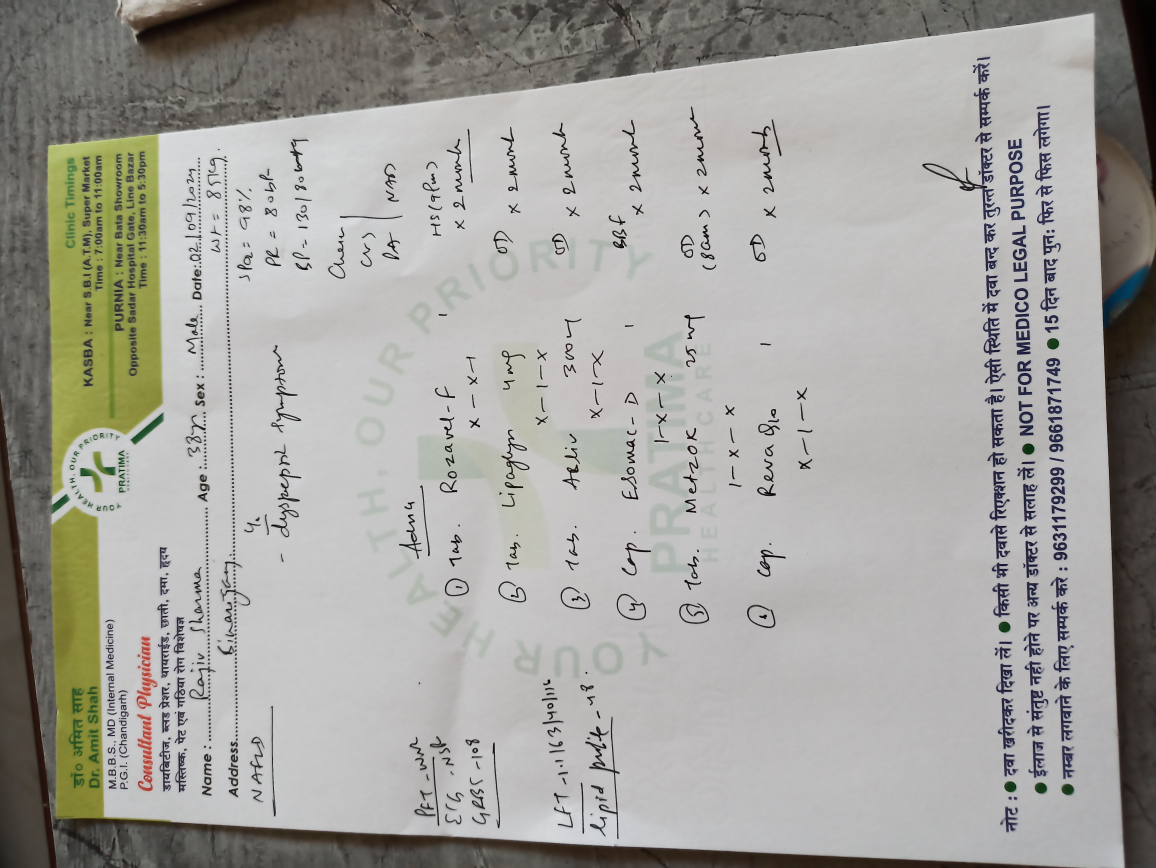 डॉ० अमित साह
Dr. Amit Shah
M.B.B.S., MD (Internal Medicine)
P.G.I. (Chandigarh)
Consultant Physician
डायबिटीज, ब्लड प्रेशर, थायराईड, छाती, दमा, हृदय
मस्तिष्क, पेट एवं गठिया रोग विशेषज्ञ
YOUR HEALTH, OUR PRIORITY
PRATIMA
HEALTH CARE
Clinic Timings
KASBA : Near S.B.I (A.T.M), Super Market
Time : 7:00am to 11:00am
PURNIA : Near Bata Showroom
Opposite Sadar Hospital Gate, Line Bazar
Time : 11:30am to 5:30pm
Name : Rajiv Sharma Age : 33yr Sex : Male Date: 02/09/2024
Address Wt = 85kg.
NAFLD
- dyspeptic symptoms
SPO2 = 98%
PR = 80 bpm
BP - 130/80 mmHg
Chest
CVS
PA NAD
ECG - NSR
GRBS - 108
LFT - 1.1/63/40/116
lipid profile - 48.
Advice
① Tab. Rozavel-F 1 HS (9pm)
x - x - 1 x 2 month
② Tab. Lipaglyn 4mg OD x 2 month
x - 1 - x
③ Tab. 300mg OD x 2 month
x - 1 - x
④ Cap. Esomac-D 1 BBF x 2 month
1 - x - x
⑤ Tab. Metzok 25mg OD (8am) x 2 month
1 - x - x
⑥ Cap. Reva Q10 1 OD x 2 month
x - 1 - x
YOUR HEALTH, OUR PRIORITY
PRATIMA
HEALTH CARE
नोट : ● दवा खरीदकर दिखा लें। ● किसी भी दवासे रिएक्शन हो सकता है। ऐसी स्थिति में दवा बन्द कर तुरन्त डॉक्टर से सम्पर्क करें।
● ईलाज से संतुष्ट नही होने पर अन्य डॉक्टर से सलाह लें। ● NOT FOR MEDICO LEGAL PURPOSE
● नम्बर लगवाने के लिए सम्पर्क करे : 9631179299 / 9661871749 ● 15 दिन बाद पुन: फिर से फिस लगेगा।